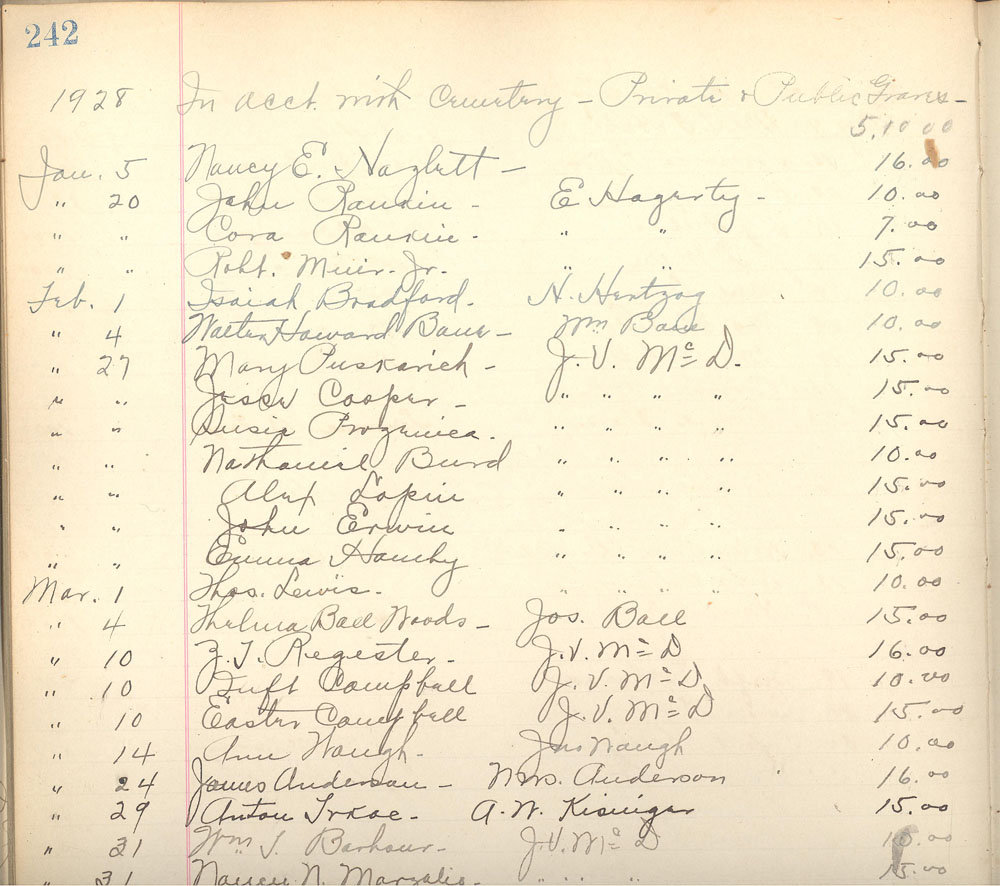 242
1928 In acct. with Cemetery - Private & Public Graves -
5,10 00
Jan. 5 Nancy E. Hazlett - 16.00
" 20 John Rankin - E Hagerty - 10.00
" " Cora Rankin - " " 7.00
" " Robt. Muir Jr. " " 15.00
Feb. 1 Isaiah Bradford. N. Hentzog 10.00
" 4 Walter Howard Bane - Wm Bane 10.00
" 27 Mary Puskarich - J. V. Mc D. 15.00
" " Jesse Cooper - " " " " 15.00
" " Susie " " " " 15.00
" " Nathaniel Burd " " " " 10.00
" " Alex Lopin " " " " 15.00
" " John Erwin " " " " 15.00
" " Emma Hamby " " " " 15.00
Mar. 1 Thos. Lewis. " " " " 10.00
" 4 Thelma Bail Woods - Jos. Bail 15.00
" 10 Z. T. Regester. J. V. Mc D 16.00
" 10 Tuft Campbell J. V. Mc D 10.00
" 10 Easter Campbell J. V. Mc D 15.00
" 14 Ann Waugh - Jno Waugh 10.00
" 24 James Anderson - Mrs. Anderson 16.00
" 29 Anton A. W. Kisinger 15.00
" 31 Wm J. Barbour - J. V. Mc D 10.00
" 31 Nancy N. " " " 15.00